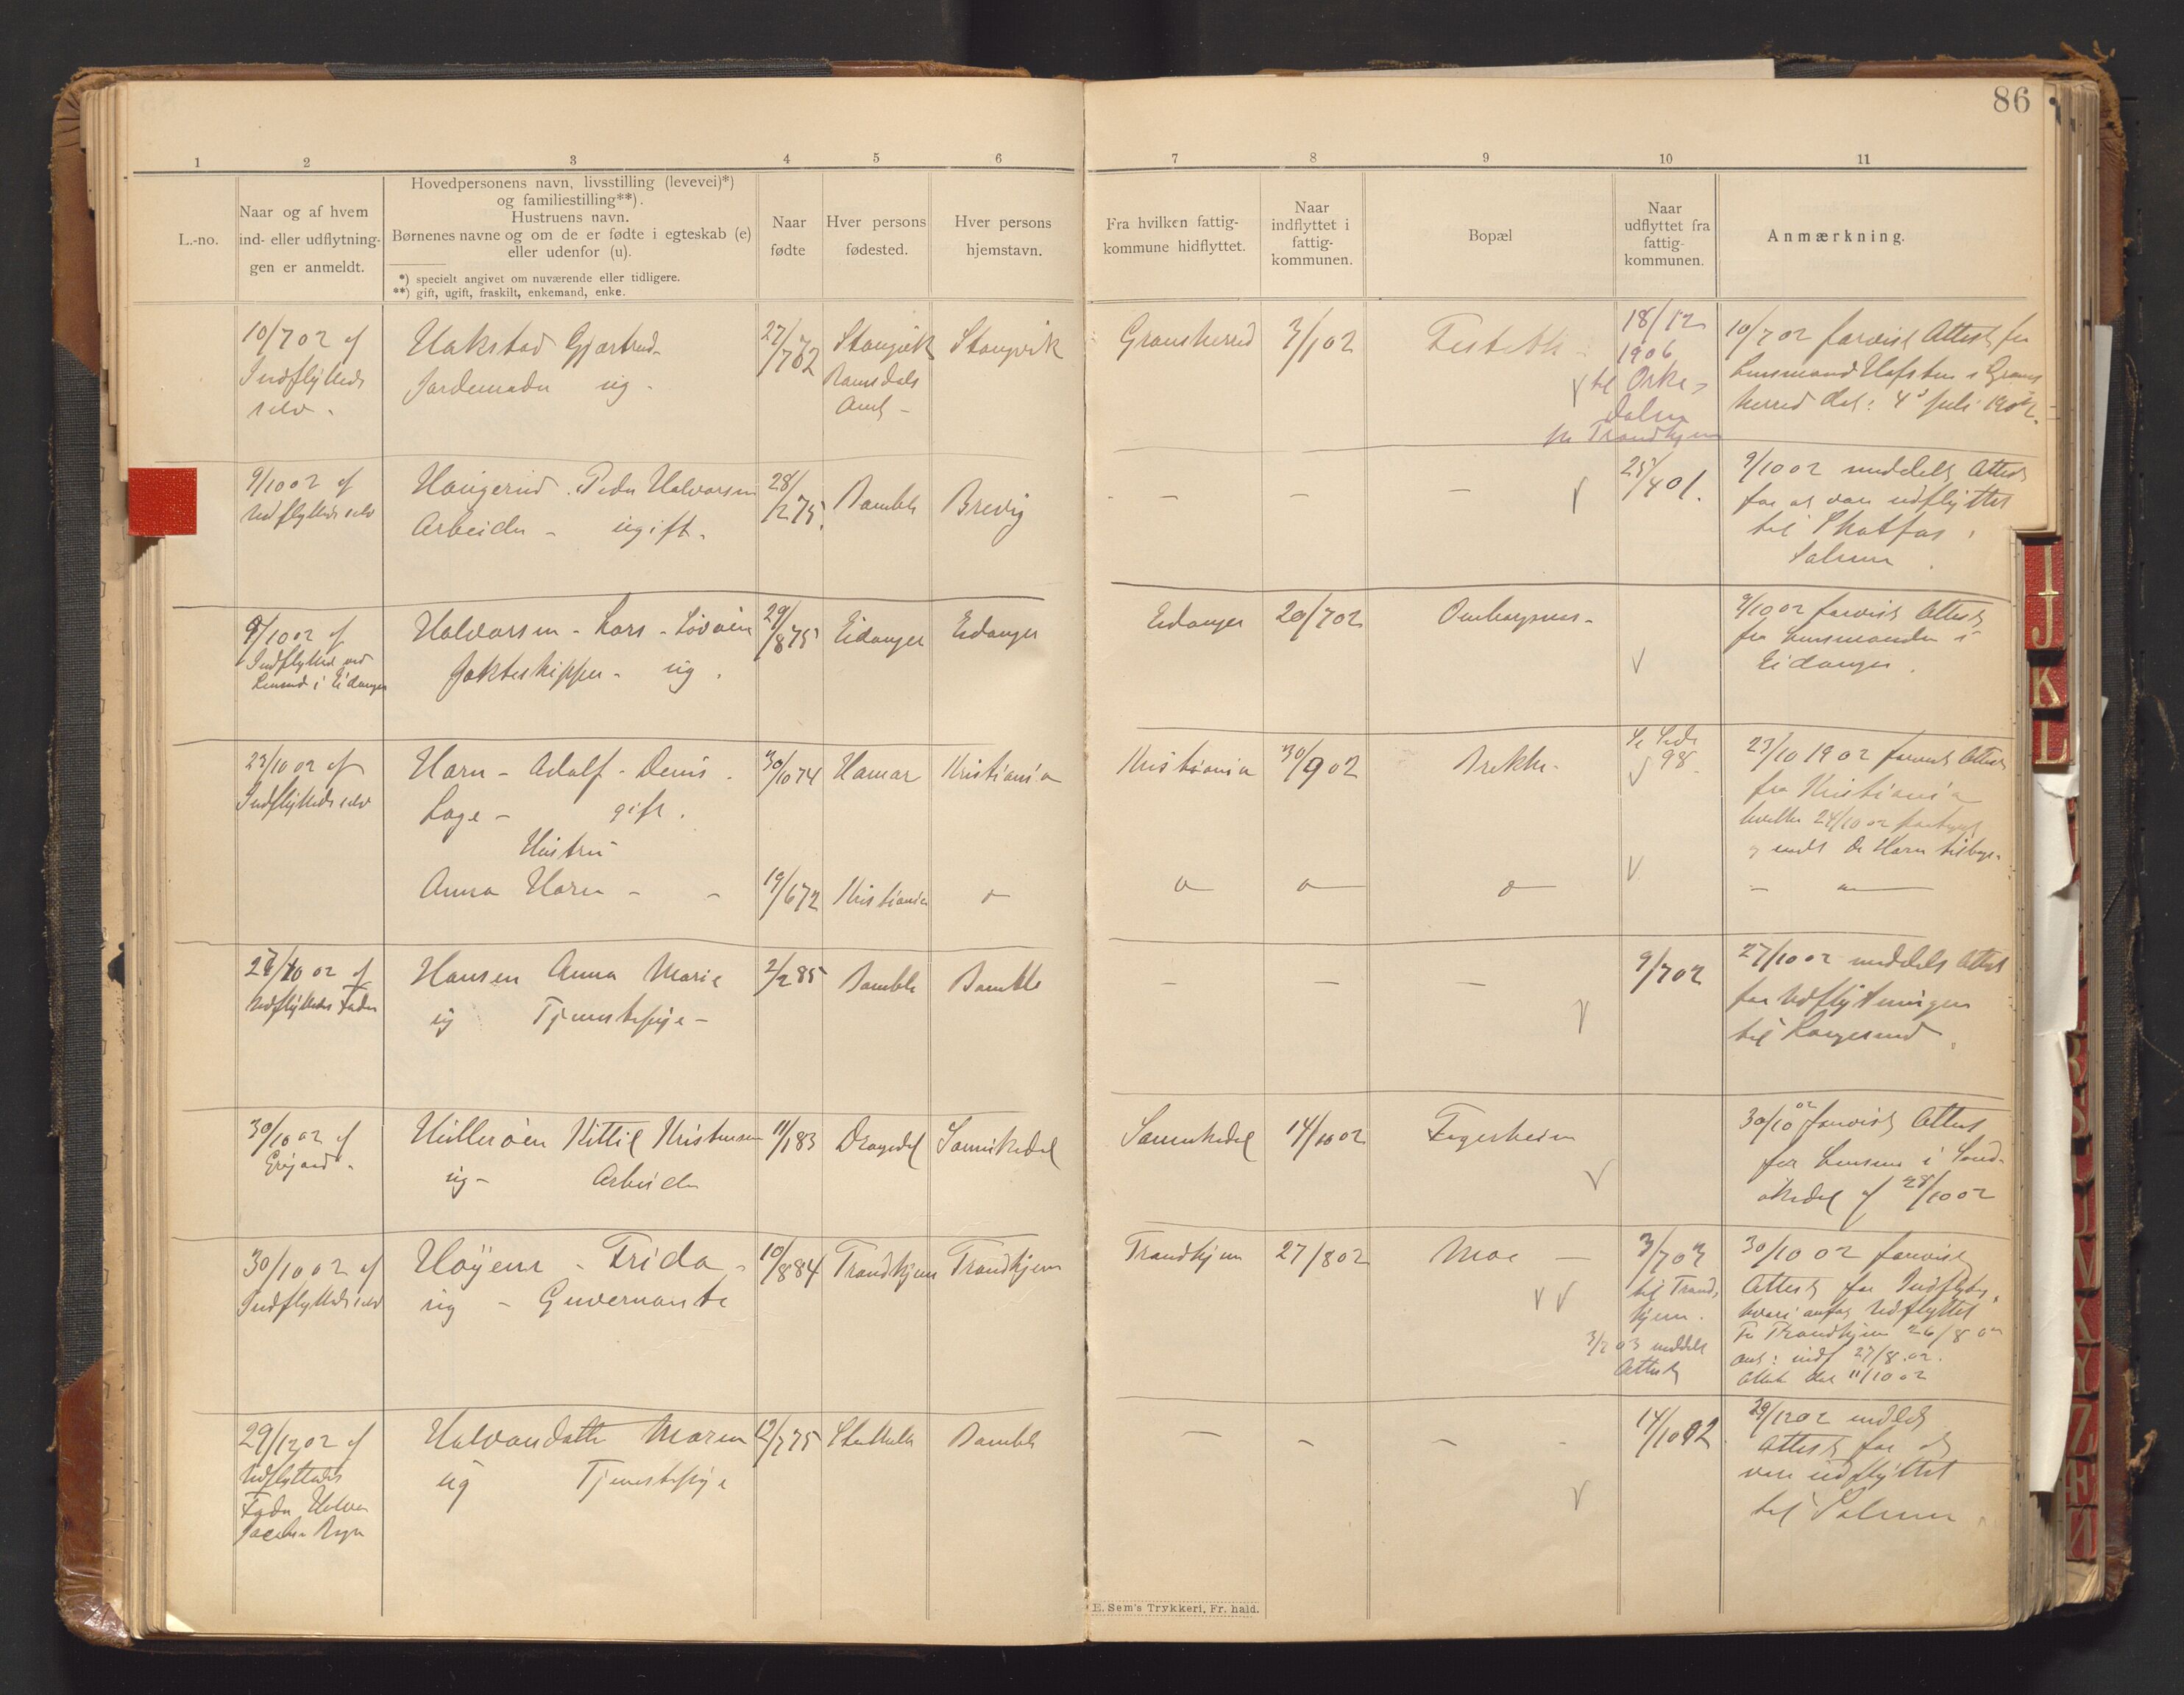 86
1 2 3 4 5 6 7 8 9 10 11
L.-no.
Naar og af hvem
ind- eller udflytnin-
gen er anmeldt.
Hovedpersonens navn, livsstilling (levevei)*)
og familiestilling**).
Hustruens navn.
Børnenes navne og om de er fødte i egteskab (e)
eller udenfor (u).
*) specielt angivet om nuværende eller tidligere.
**) gift, ugift, fraskilt, enkemand, enke.
Naar
fødte
Hver persons
fødested.
Hver persons
hjemstavn.
Fra hvilken fattig-
kommune hidflyttet.
Naar
indflyttet i
fattig-
kommunen.
Bopæl
Naar
udflyttet fra
fattig-
kommunen.
Anmærkning.
10/7 02 af
Indflyttede
selv.
Hakstad Gjertrud
Jordemoder ug.
27/7
Stangvik
Romsdals
Amt
Stangvik
Gransherred
3/1 02
18/12
1906
til Orke-
dalen
Trondhjem
10/7 02 forevist Attest fra
Lensmand Hafsten i Grans
herred dat: 4 juli 1902.
9/10 02 af
Udflyttede selv
Haugerud. Peder Halvorsen
Arbeider - ugift.
28/12 75.
Bamble
Brevig
- - -
25/4 01.
9/10 02 meddelt Attest
for at være udflyttet
til Skotfos,
Solum
9/10 02 af
Indflyttede ved
Lensmd i Eidanger
Halvorsen - Lars - Lövöen
Jakteskipper - ug.
29/8 75
Eidanger
Eidanger
Eidanger
20/7 02
9/10 02 forevist Attest
fra Lensmanden i
Eidanger.
23/10 02 af
Indflyttede selv
Horn - Adolf - Denis.
Læge - gift.
Hustru
Anna Horn -
30/10 74
Hamar
Kristiania
19/6 72
Kristiania
Kristiania
30/9 02
Brekke
Se Side
98
23/10 1902 forevist Attest
fra Kristiania
hvilken 24/10 02
og sendt Dr Horn tilbage.
27/10 02 af
Udflyttedes Fader
Hansen Anna Marie
ug Tjenestepige -
2/2 85
Bamble
Bamble
- - -
9/7 02
27/10 02 meddelt Attest
for Udflytningen
til Langesund.
30/10 02 af
Hülleröen Kittil Kristensen
ug - Arbeider
11/1 83
Drangedal
Sannikedal
Sannikedal
14/10 02
Fagerheim
30/10 02 forevist Attest
fra Lensm i Sand-
økedal af 28/10 02
30/10 02 af
Indflyttede selv
Höyem - Frida -
ug - Guvernante
10/8 84
Trondhjem
Trondhjem
Trondhjem
27/8 02
Moe -
3/7 03
til Trond-
hjem.
3/2 03 meddelt
Attest
30/10 02 forevist
Attest for Indflytn.
hvori anført Udflyttet
fra Trondhjem 26/8 02
ank: indf 27/8 02.
Attest dat 11/10 02
29/12 02 af
Udflyttedes
Fader Halvor
Halvorsdatter Maren
ug Tjenestepige
12/7 75
Bamble
- - -
14/10 02
29/12 02 meddelt
Attest for at
være udflyttet
til Solum.
E. Sem's Trykkeri, Fr. hald.
I
J
K
L